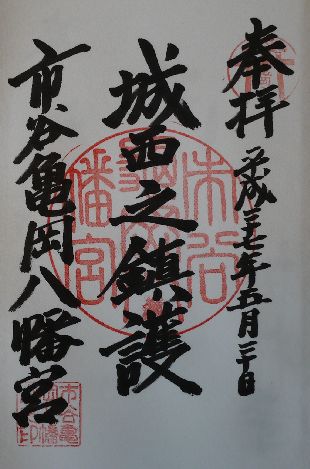 奉拝
平成二十七年五月二十日
城西之鎮護
市谷亀岡八幡宮